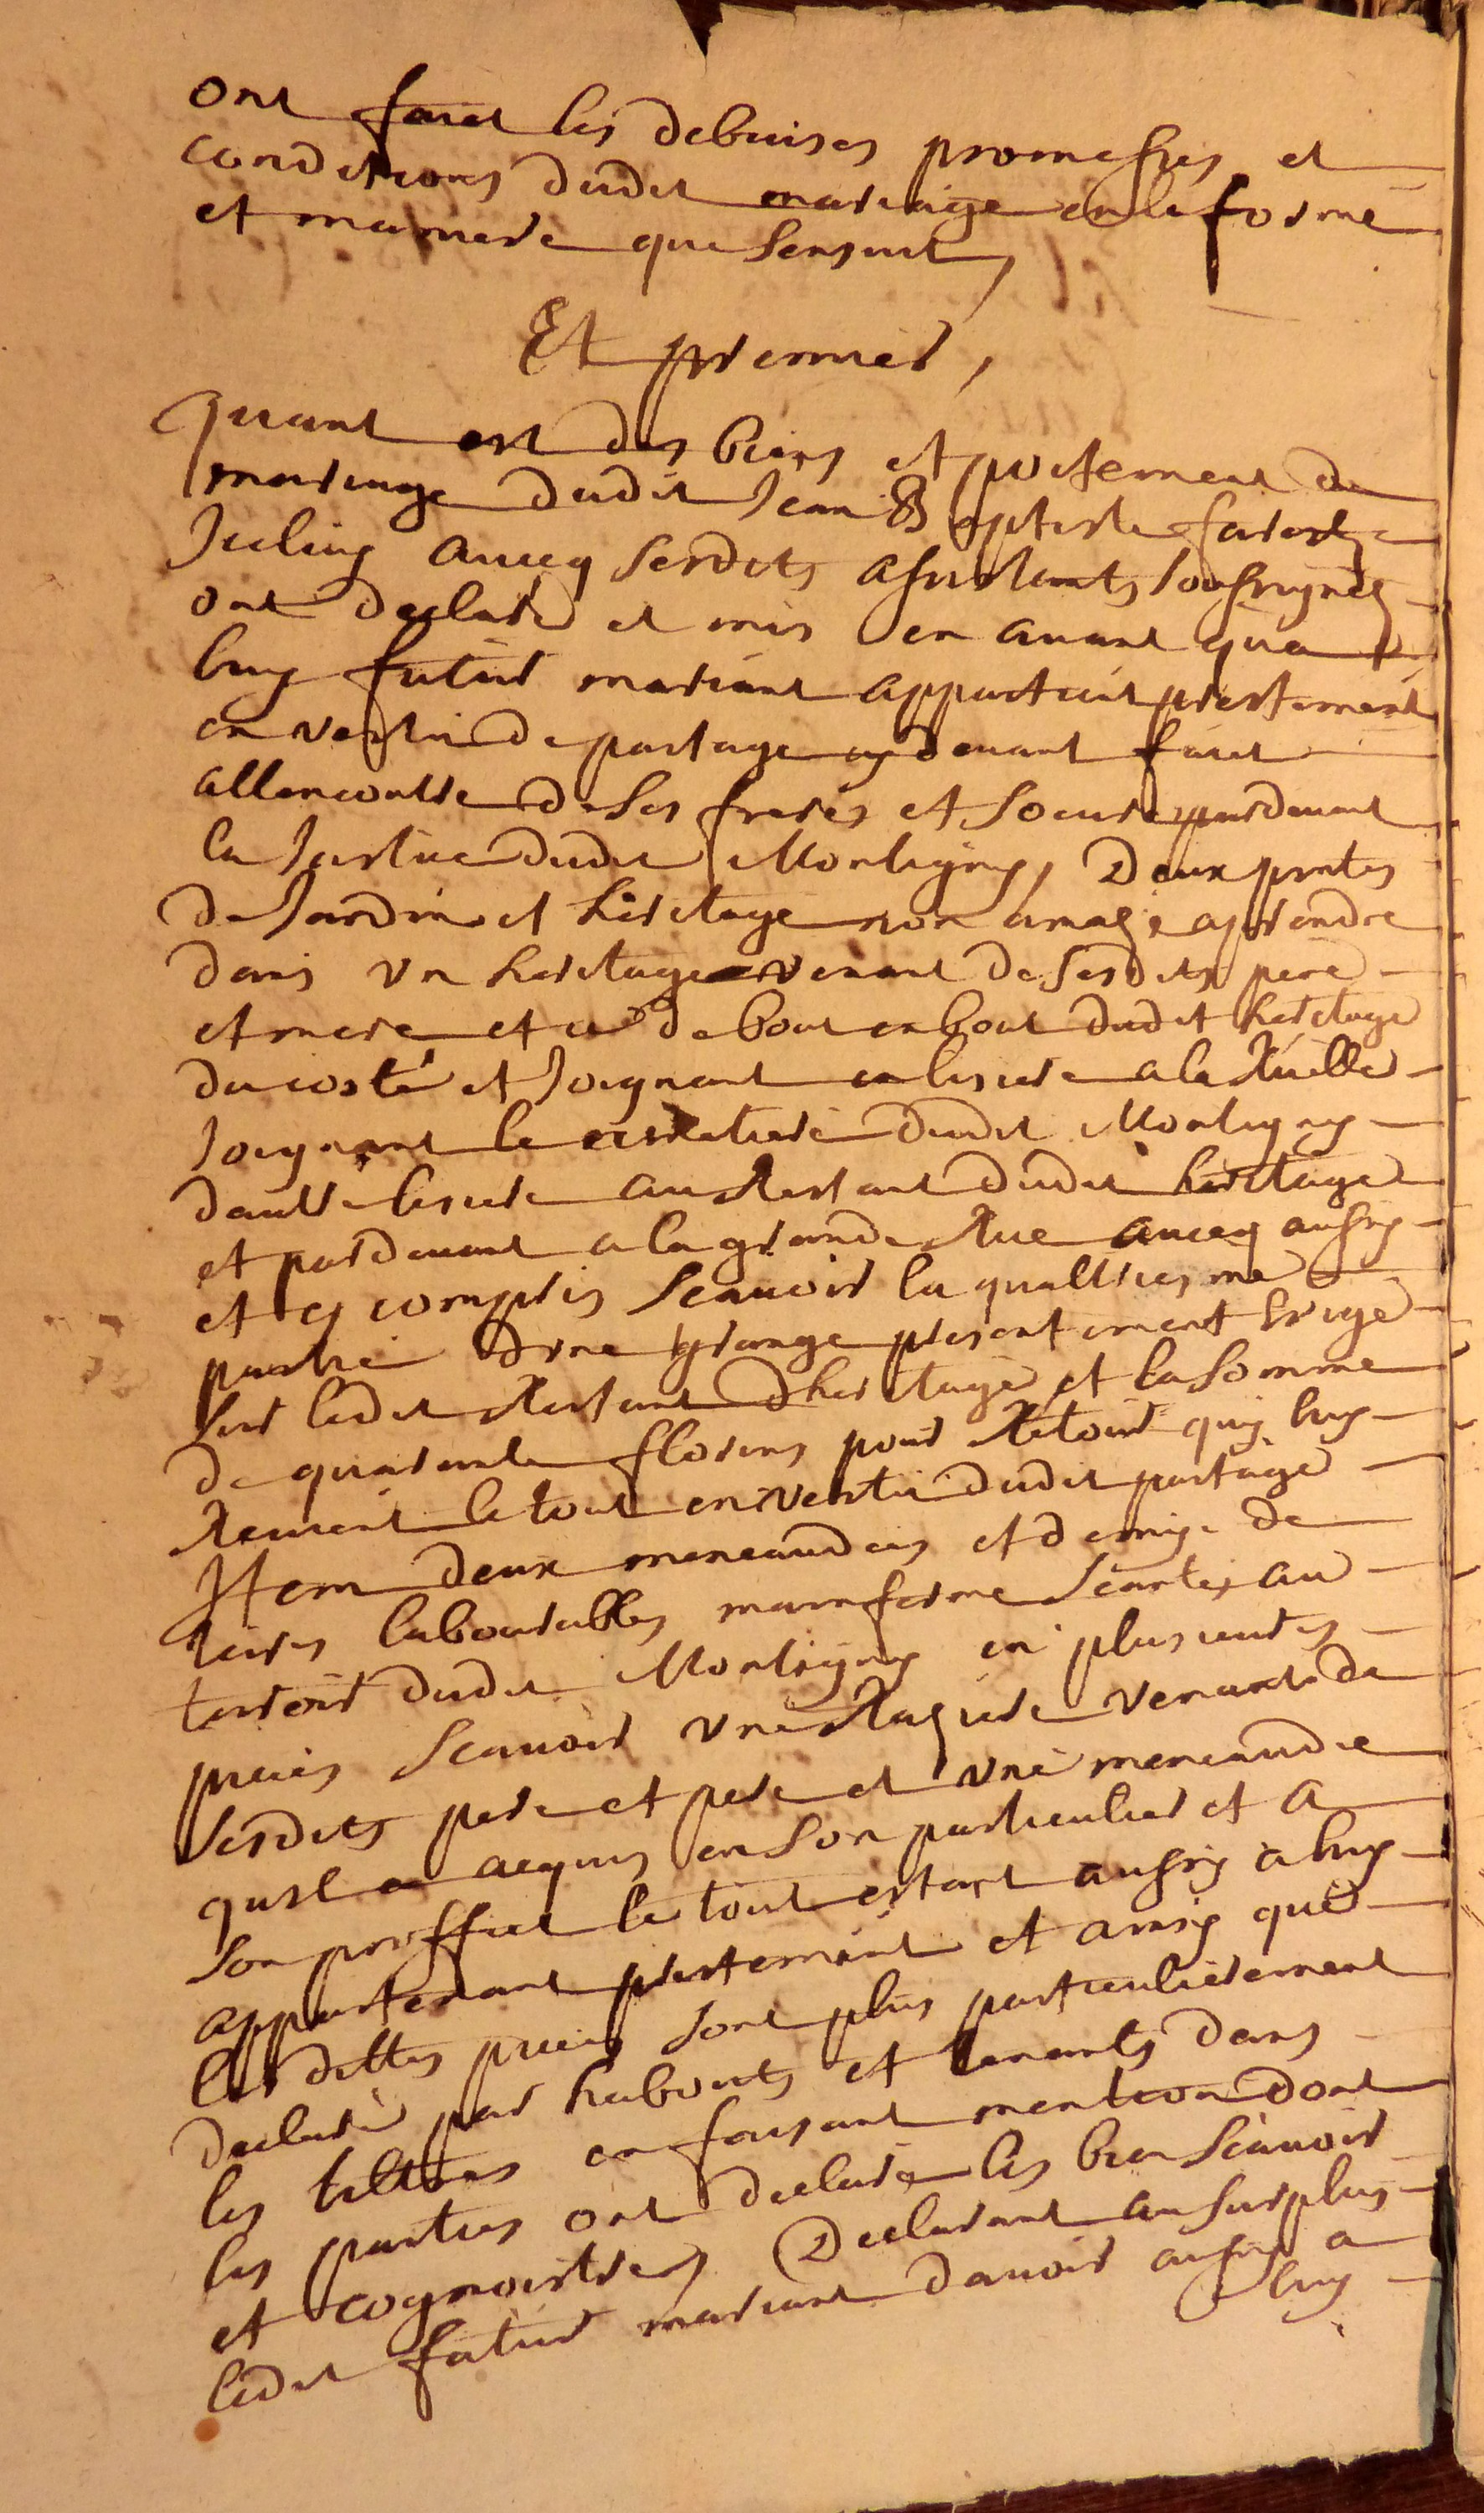 ont faict les debuises promesses et
conditions dudit mariage en la forme
et maniere que sensuit,
Et premier,
Quant est des biens et portement de
mariage dudit Jean Baptiste
aucq sesdits assistants soussignez
ont declaré et mis en auant qua
luy futur mariant appartient prestement
en vertu de partage cy deuant faict
allencontre de ses freres et soeurs pardeuant
la Justice dudit Montigny, Deux pintes
de Jardin et héritage non amazé a prendre
dans vn heritage venant de sesdits pere
et mere et ce de bout en bout dudit heritage
du costé et Joignant en lisiere a la Ruelle
Joignant le cimetiere dudit Montigny
dautre lisiere au Restant dudit heritage
et pardeuant a la grande Rue aucq aussy
et cy compris Scauoir la quattriesme
partie dvne grange presentement Erigé
sur ledit Restant dheritage et la somme
de quarante florins pour Retour quy luy
Reuient le tout en vertu dudit partage
Item deux mencaudées et demye de
terres labourables mainferme scantes au
terroir dudit Montigny en plusieurs
pieces Scauoir vne Rasiere venante de
sesdits pere et pere et vne mencaudée
quil a acquis en son particulier et a
son proffict le tout estant aussy a luy
appartenant prestement et ainsy que
lesdittes pieces sont plus particulierement
declaré par habouts et tenants dans
les tiltres en faisant mention dont
les parties ont declaré les bien Scauoir
et cognoistre, Declarant au surplus
ledit futur mariant dauoir aussy a
luy